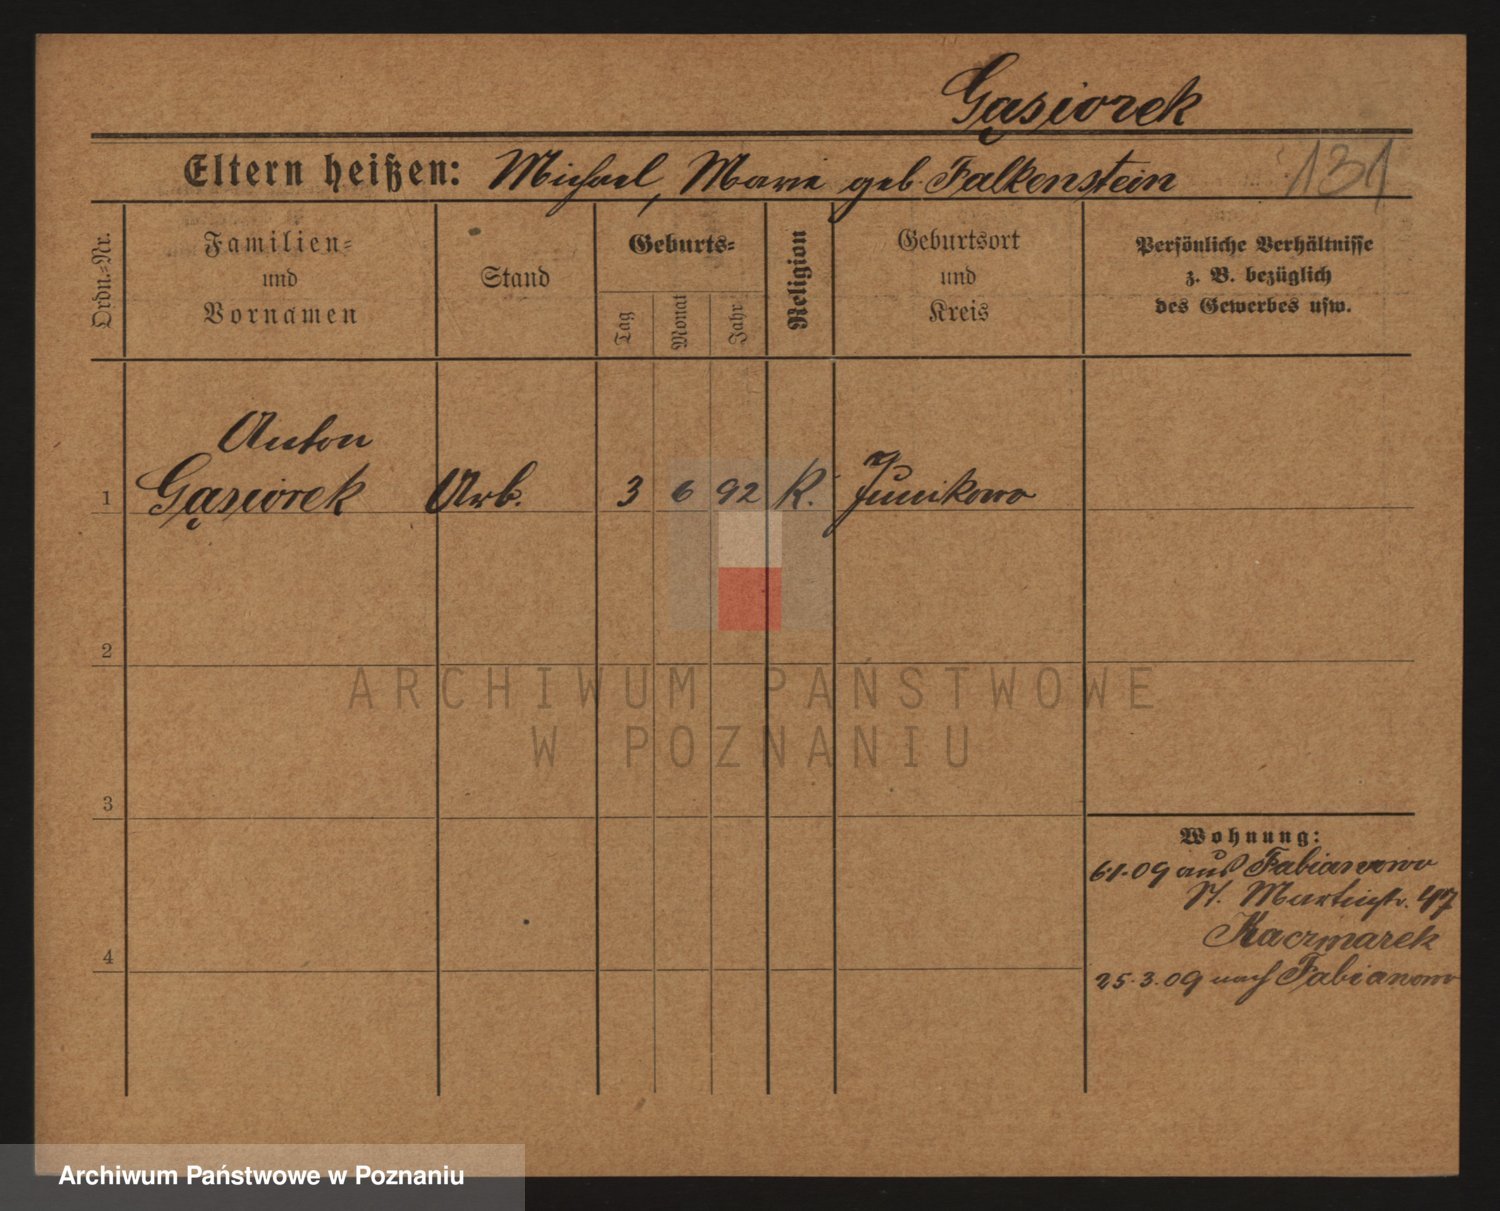 Gąsiorek
Eltern heißen: Michael, Marie geb. Falkenstein 131
Ordn.=Nr.
Familien=
und
Vornamen
Stand
Geburts=
Tag
Monat
Jahr
Religion
Geburtsort
und
Kreis
Persönliche Verhältnisse
z. B. bezüglich
des Gewerbes usw.
Anton
1 Gąsiorek Arb. 3 6 92 K. Junikowo
2
ARCHIWUM PAŃSTWOWE
W POZNANIU
3
Wohnung:
6.1.09 aus Fabianowo
St. Martinstr. 47
Kaczmarek
4
25.3.09 nach Fabianowo
Archiwum Państwowe w Poznaniu